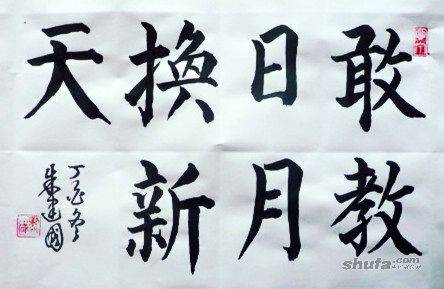 敢教
日月
换新
天
丁亥冬
朱建国
shufa.com